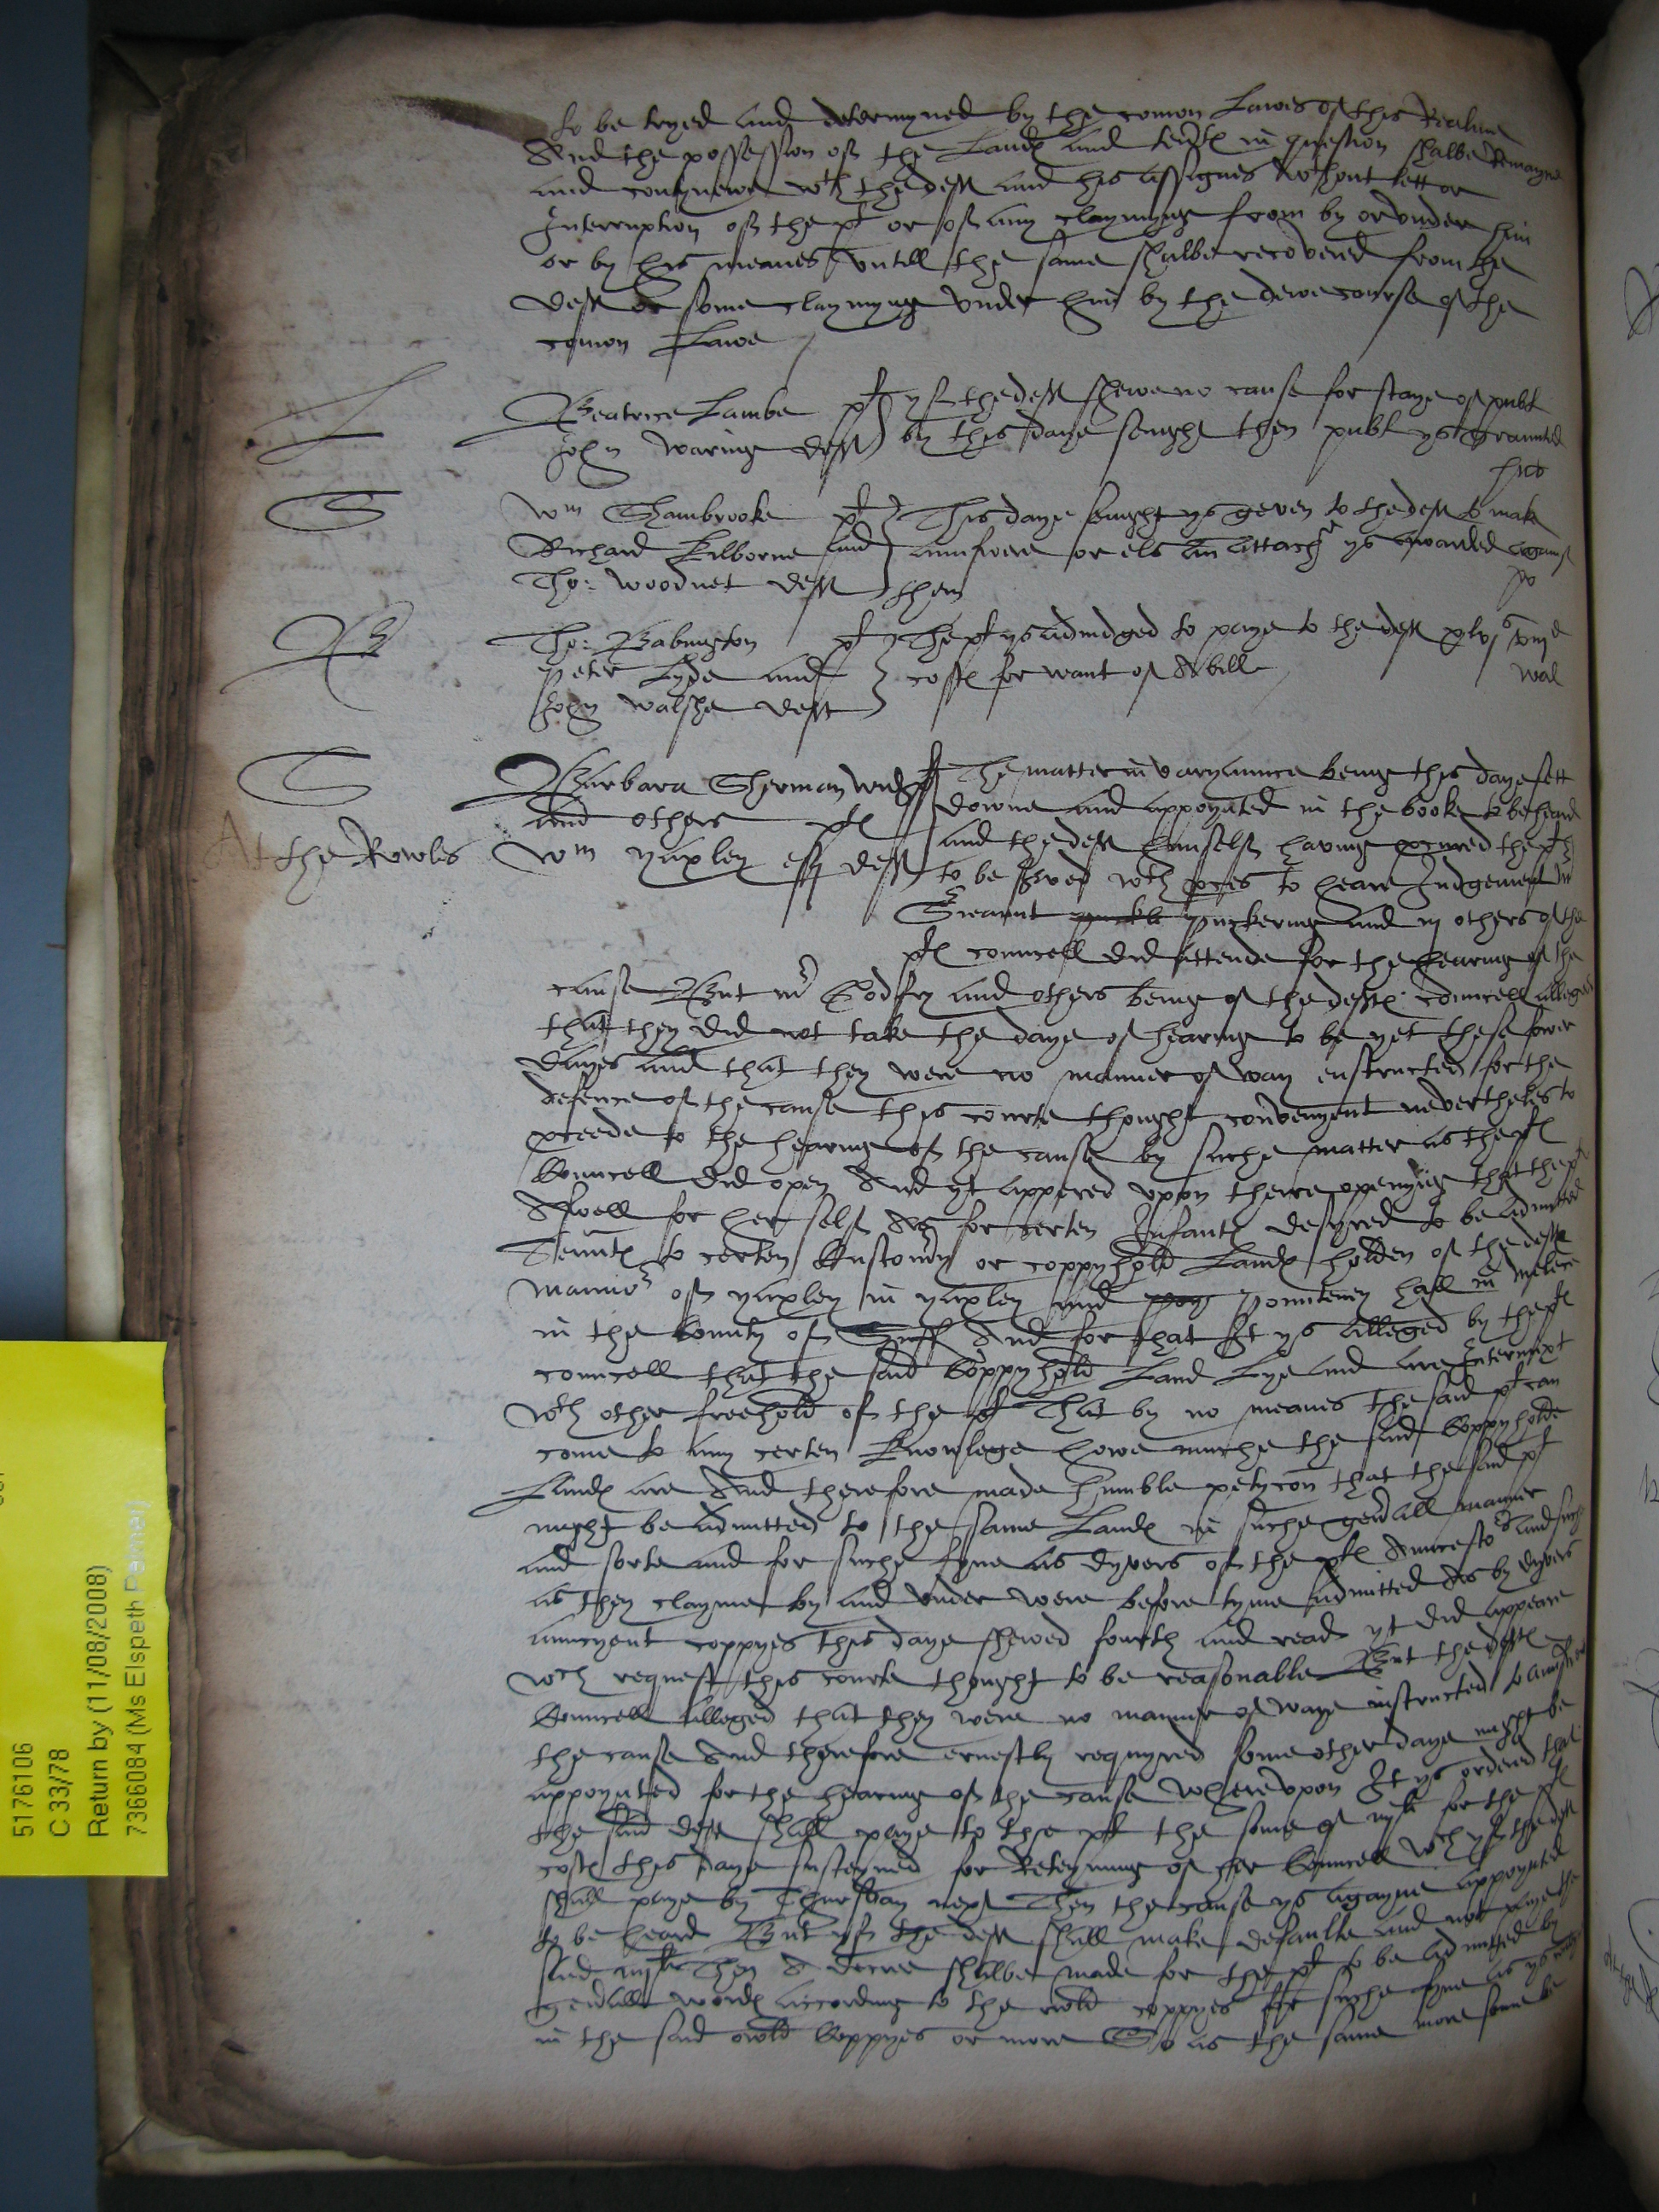 to be tryed and determyned by the comon Lawes of this Realme
And the possession of the Landes and tentes in question shalbe Remayne
and contynewe wth the deft and his assignes wthout lett or
Interruption of the pt or of any claymyng from by or under him
or by his meanes untill the same shalbe recovered from the
deft or some claymyng under him by the dewe course of the
comon Lawe
L
Beatrice Lambe pt yf the deft shewe no cause for staye of publ
John Waring deft by this daye senight then publ ys graunted
S
Wm Shambrooke pt This daye senight ys geven to the deft to make
Richard Kilborne and aunswere or els an attachmt ys awarded against
Tho: Woodnet deft them
B
Tho: Babington pt The pt ys adiudged to paye to the deft xlvis viiid
Peter Lyde and costes for want of A bill
wal
John Walshe deft
S
Barbara Sherman wid pt The matter in varyaunce being this daye sett
and others ptes downe and appoynted in the booke to be heard
At the Rowles
Wm yaxley esq deft and the deft himself having procured the pt
to be served wth proces to heare Judgement
Sreaunt Puckering and others of the
ptes councell did attende for the hearing of the
cause But mr Godfry and others being of the deftes councell alleged
that they did not take the daye of hearing to be yet these fower
dayes and that they were no manner of way enstructed for the
defence of the cause this courte thought convenyent nevertheles to
procede to the hearing of the cause by suche matter as the ptes
Councell did open And yt appered upon theire openyng that the pt
Aswell for her self As for certen Infantes desyred to be admitted
Tenntes to certen Customary or coppyhold Landes holden of the deftes
mannor of yaxley in yaxley and pountney hall in Melece
in the County of Suff And for that It ys alleged by the ptes
councell that the said Coppyhold Land Lye and are Intermyxt
wth other freehold of the pt That by no meanes the said pt can
come to any certen knowlege howe muche the said Coppyholde
Landes are And therefore made humble petycon that the said pt
might be admitted to the same Landes in suche generall manner
and sorte and for suche fyne as dyvers of the ptes Auncestors and such
as they clayme by and under were before tyme admitted As by dyvers
auncyent coppyes this daye shewed fourth and read yt did appeare
wch request this courte thought to be reasonable But the deftes
Councell alleged that they were no manner of waye instructed to aunswere
the cause And therefore ernestly requyred some other daye might be
appoynted for the hearing of the cause Whereupon It ys ordered that
the said deft shall paye to the pt the some of for the ptes
costes this daye susteyned for Reteyning of her Councell wch yf the deft
shall paye by Thursday next Then the cause ys agayne appoynted
to be heard But yf the deft shall make defaulte and not paye the
said Then A decree shalbe made for the pt to be admitted by
generall wordes according to the owld coppyes for suche fyne as ys
in the said owld Coppyes or more So as the same more some be
5176106
C 33/78
Return by (11/08/2008)
7366084 (Ms Elspeth